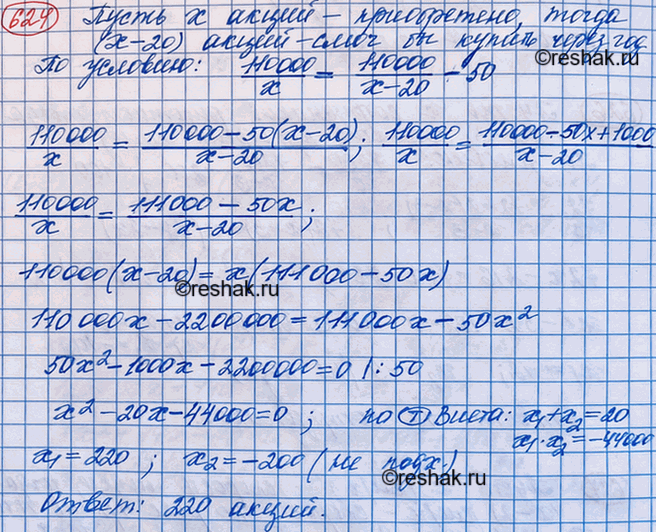 624 Пусть x акций – приобретено, тогда
(x-20) акций – смог бы купить через год
©reshak.ru
По условию: 110000/x = 110000/(x-20) - 50
110000/x = (110000-50(x-20))/(x-20); 110000/x = (110000-50x+1000)/(x-20)
110000/x = (111000-50x)/(x-20);
110000(x-20)=x(111000-50x)
©reshak.ru
110000x-2200000=111000x-50x²
50x²-1000x-2200000=0 |:50
x²-20x-44000=0; по Т Виета: x₁+x₂=20
x₁·x₂=-44000
x₁=220; x₂=-200 (не подх.)
©reshak.ru
Ответ: 220 акций.